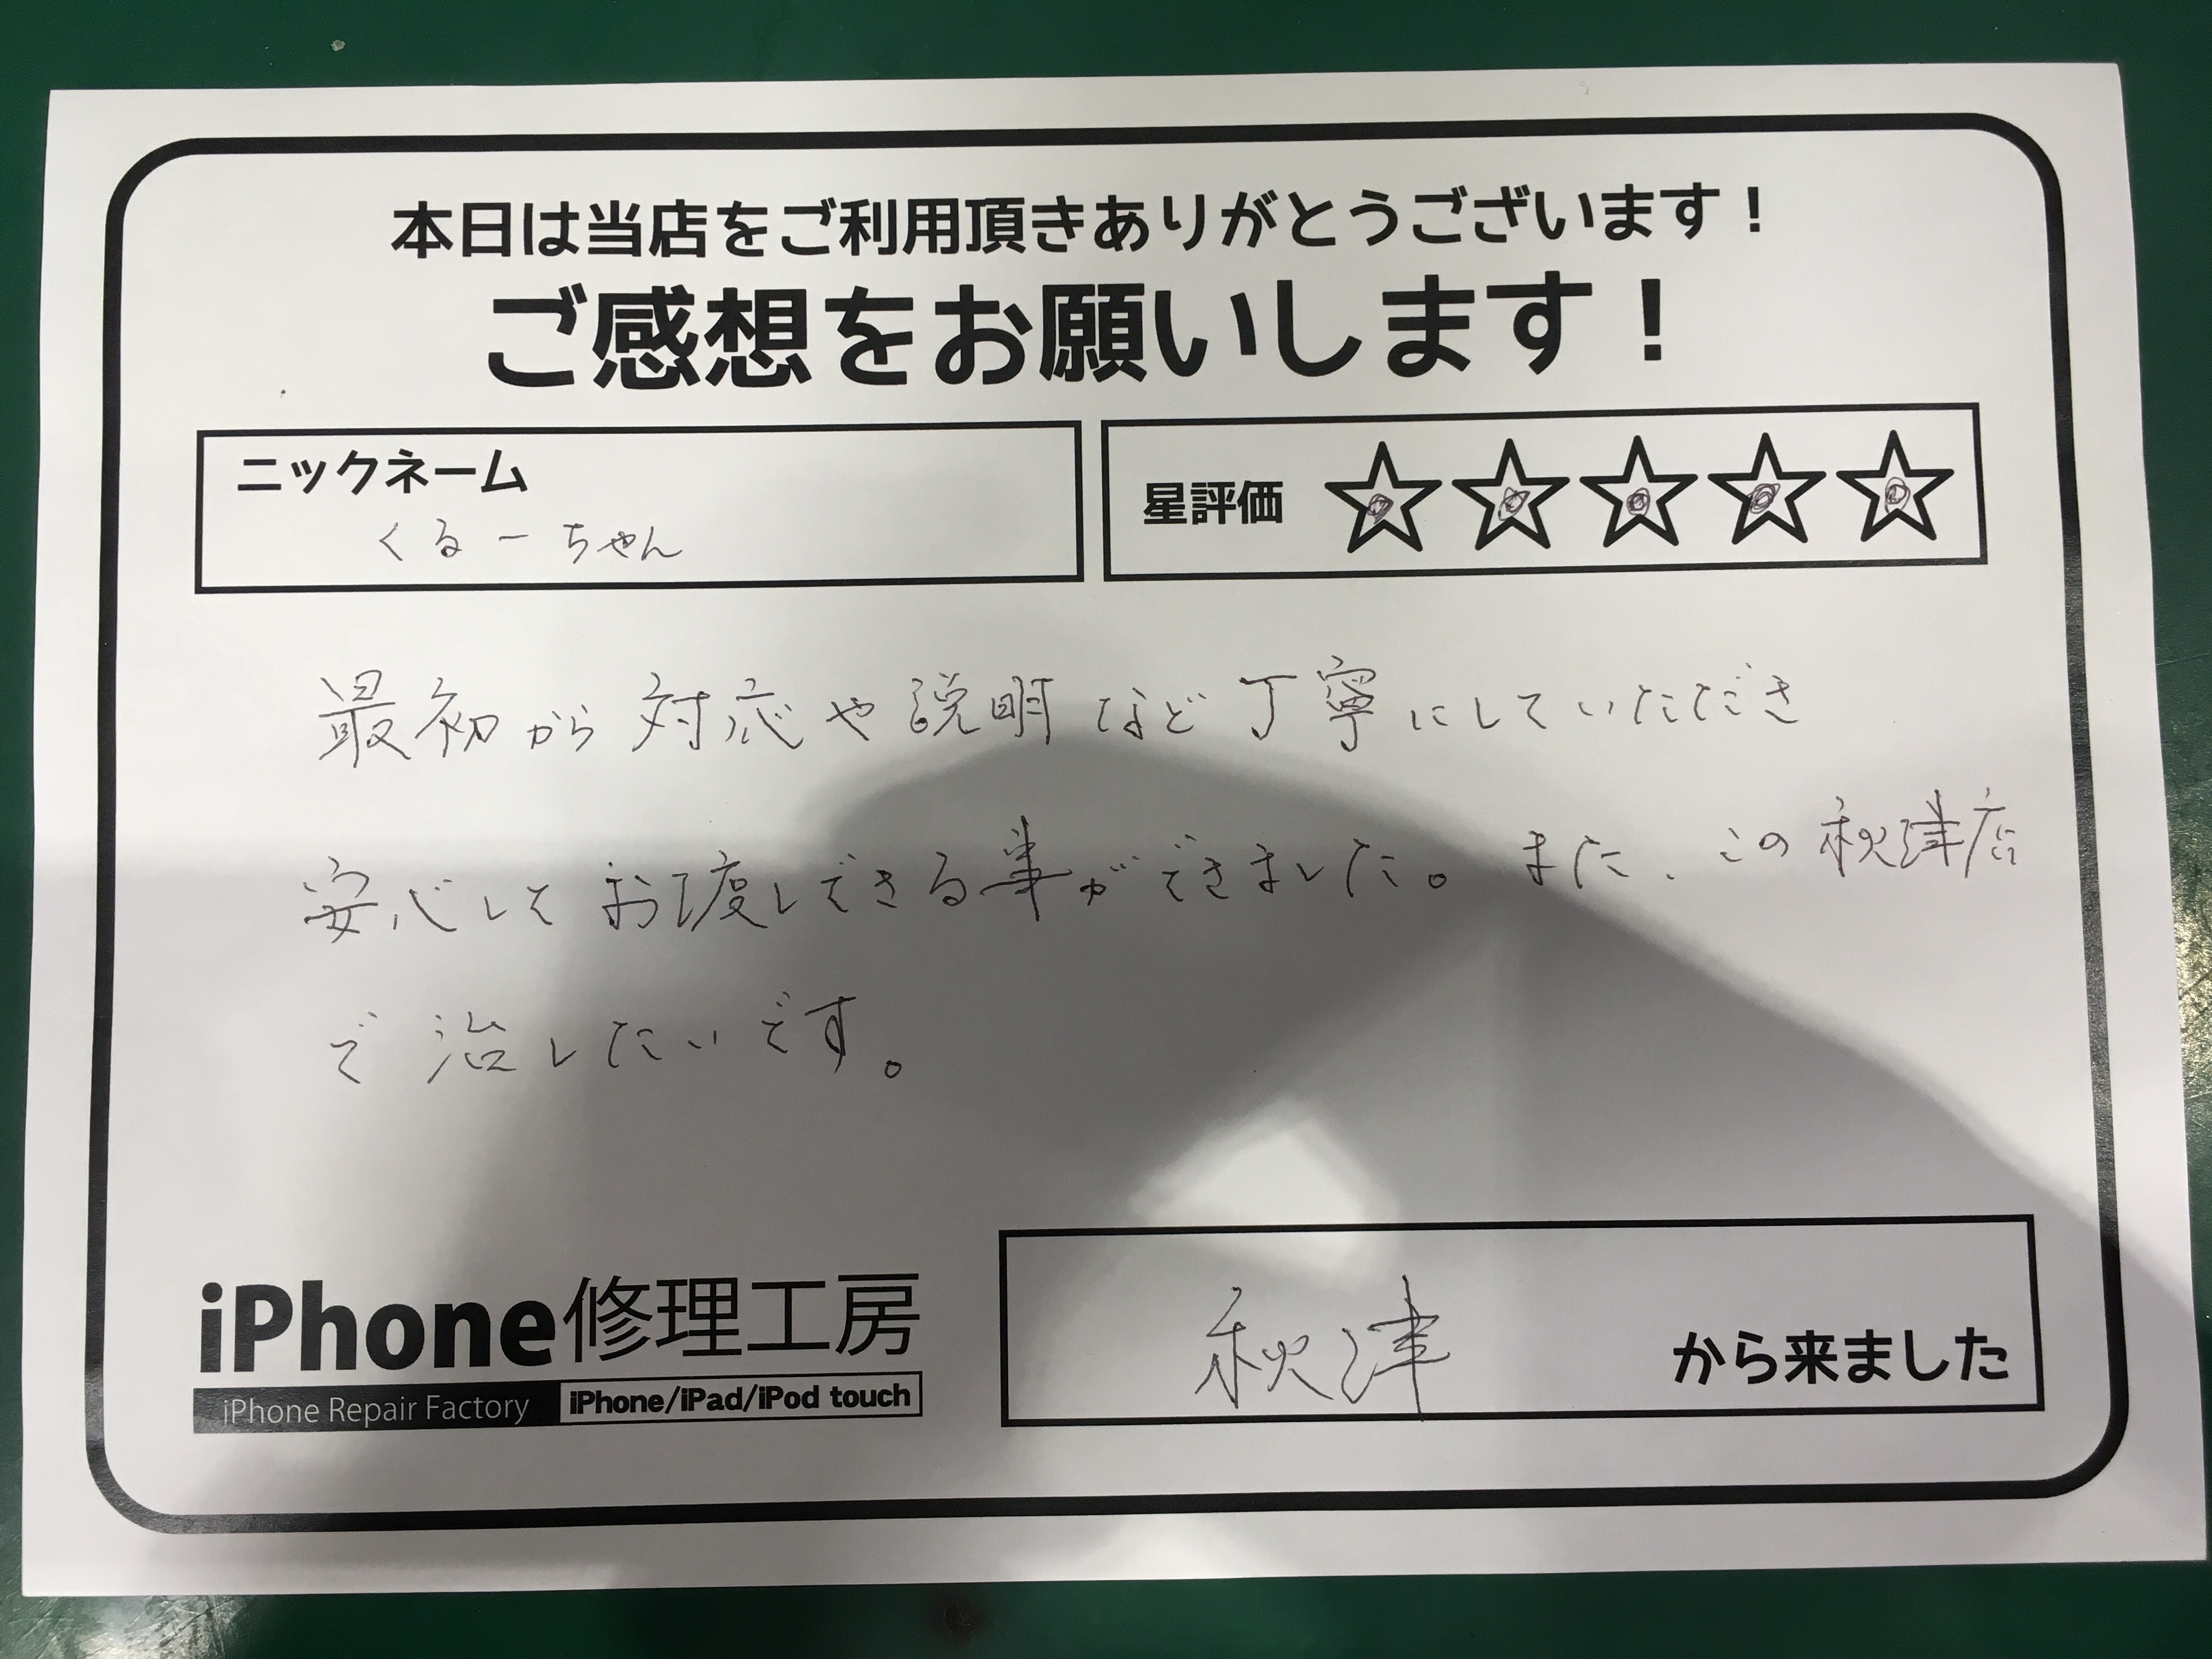 本日は当店をご利用頂きありがとうございます！
ご感想をお願いします！
ニックネーム
くるーちゃん
星評価 ☆☆☆☆☆
最初から対応や説明など丁寧にしていただき
安心してお渡しできる事ができました。また、この秋津店
で治したいです。
iPhone修理工房
iPhone Repair Factory iPhone/iPad/iPod touch
秋津 から来ました